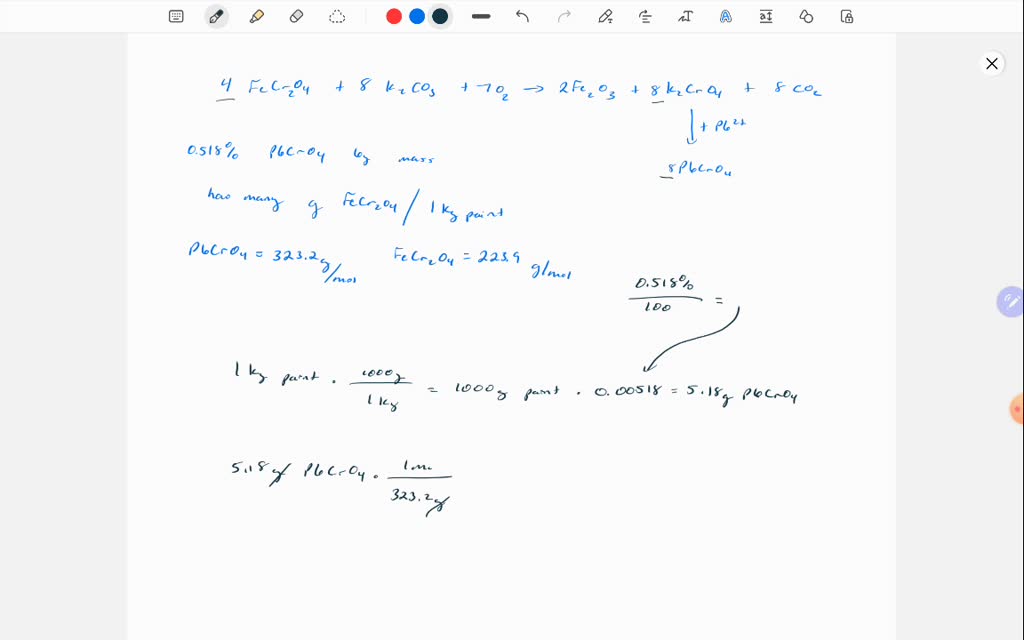 4 FeCr₂O₄ + 8 K₂CO₃ + 7O₂ → 2Fe₂O₃ + 8 K₂CrO₄ + 8 CO₂
↓ + Pb²⁺
8PbCrO₄
0.518% PbCrO₄ by mass
how many g FeCr₂O₄ / 1 kg paint
PbCrO₄ = 323.2 g/mol FeCr₂O₄ = 223.9 g/mol
0.518% / 100 =
1 kg paint · 1000g / 1 kg = 1000g paint · 0.00518 = 5.18g PbCrO₄
5.18g PbCrO₄ · 1 m / 323.2g